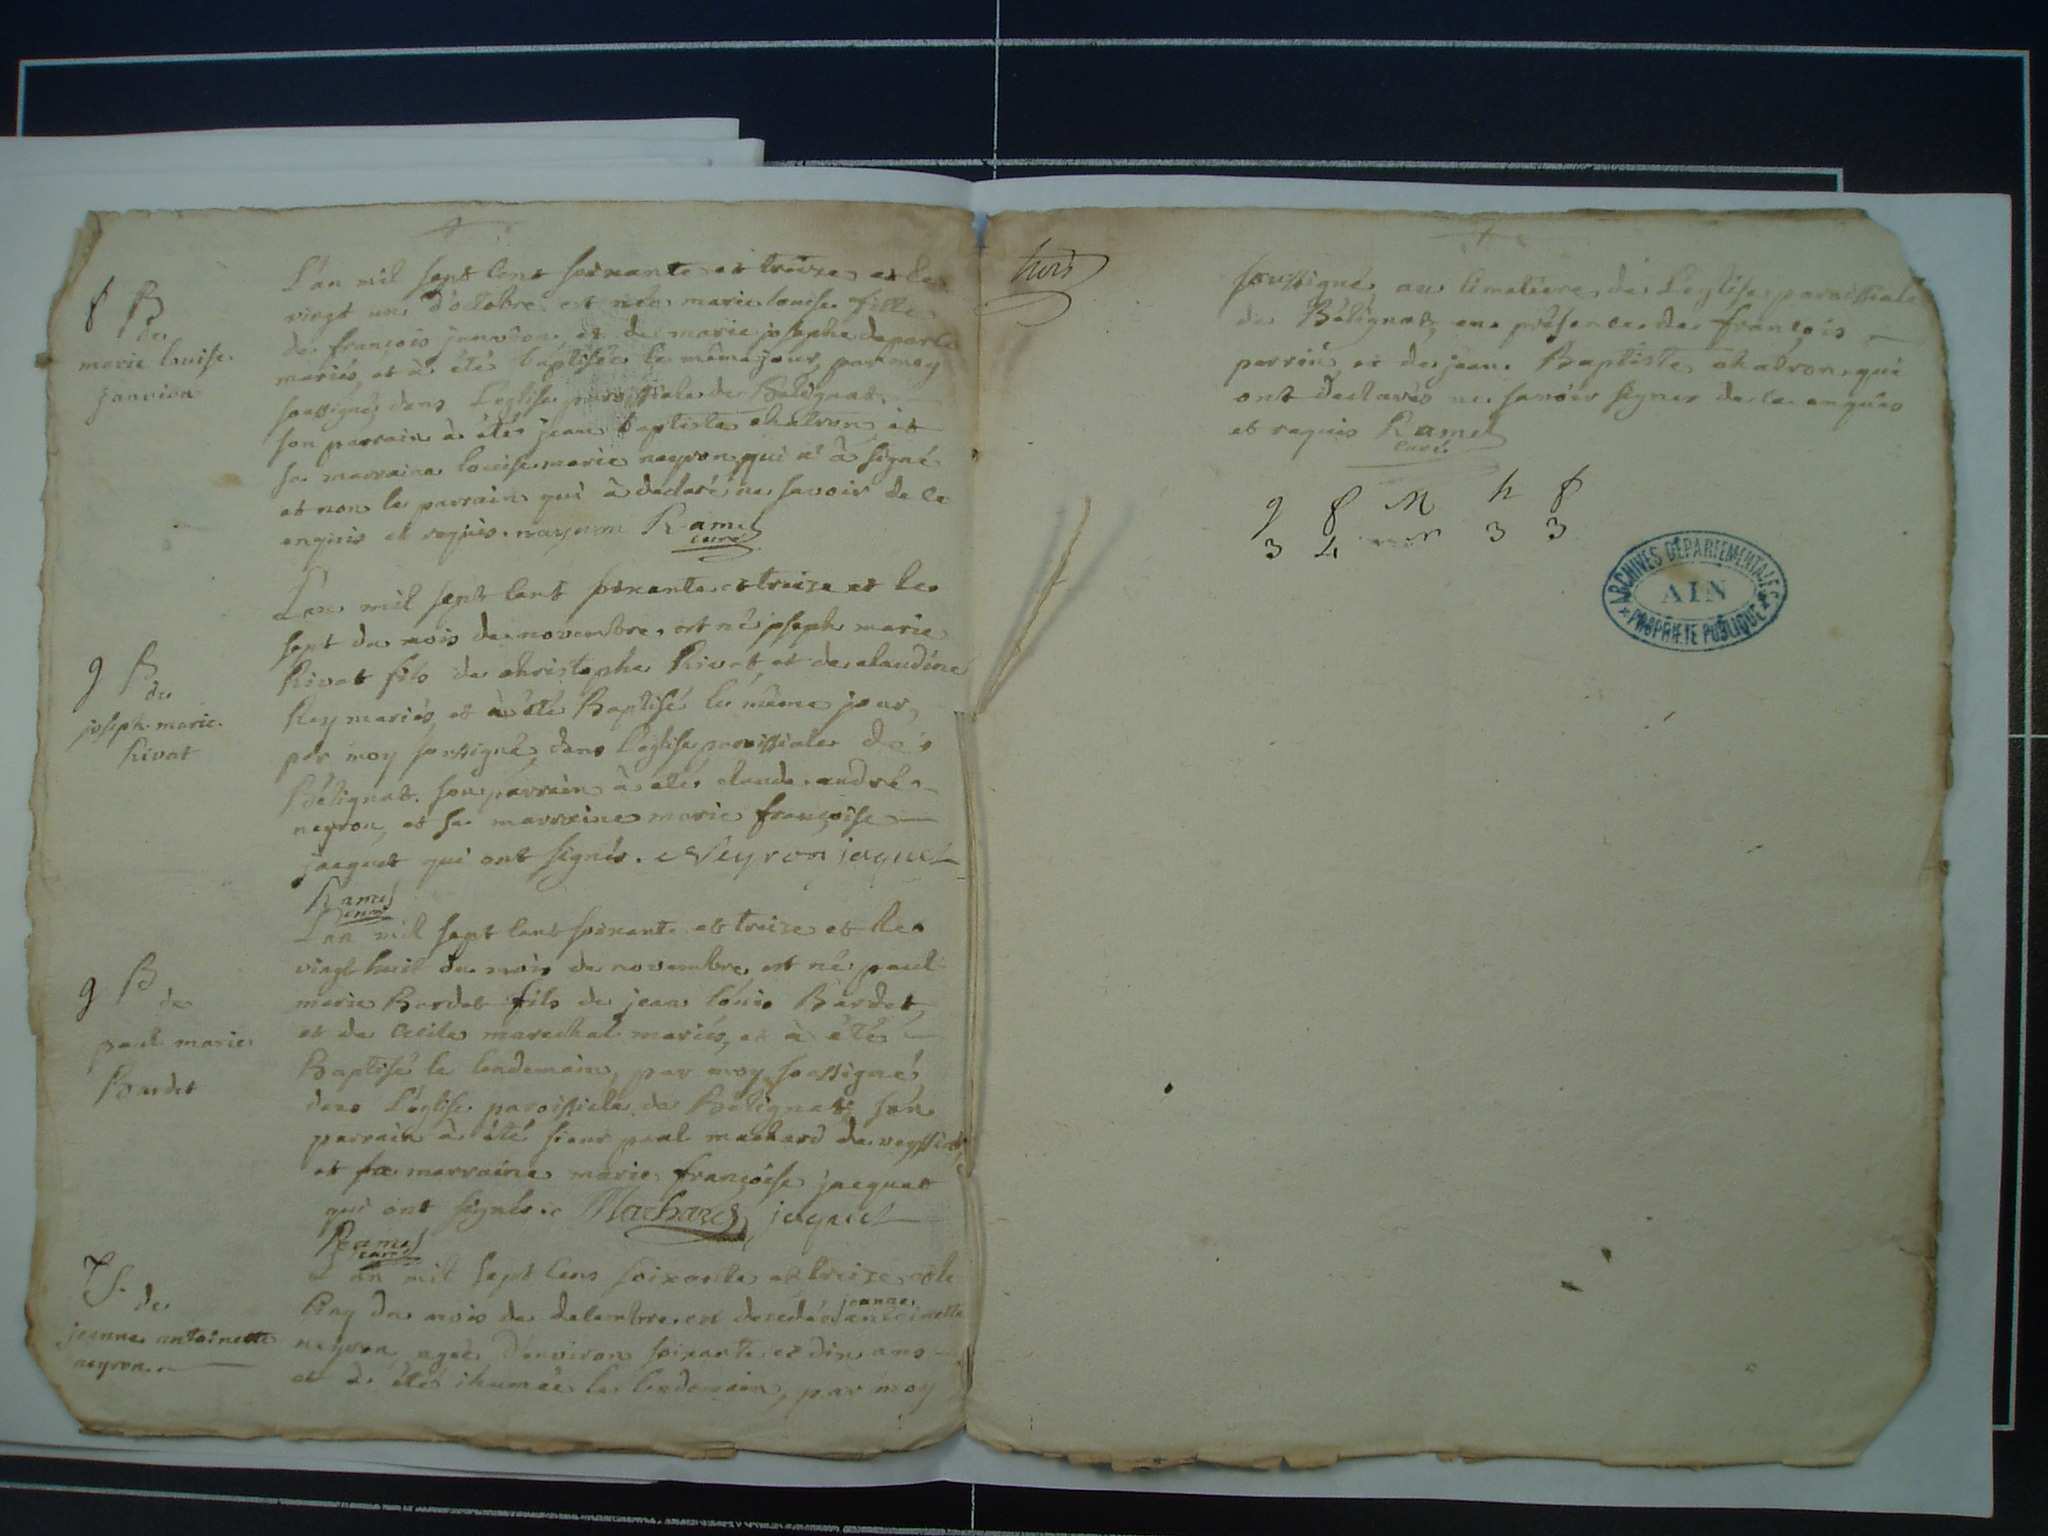 f B
de
marie louise
janvion
L'an mil sept cent soixante et treize et le
vingt un d'octobre est née marie louise fille
de françois janvion et de marie josephe
mariés, et à étée baptisée le même jour, par moy
soussigné, dans L'eglise paroissiale de Bélignat.
son parrain à étés jean baptiste chatron et
sa marraine louise marie neyron, qui n' à signé
et non le parrain qui à declaré ne savoir de ce
enquis et requis. nayrom Ramel
curé
9 B
de
joseph marie
Rivat
L'an mil sept cent soixante et treize et le
sept du mois de novembre, est né joseph marie
Rivat fils de christophe Rivat, et de claudine
Rey mariés, et à été Baptisé le même jour,
par moy soussigné, dans l'église paroissiale de
Bélignat. son parrain à étés claude andré
neyron, et sa marraine marie françoise
jacquet qui ont signés. Neyron jaquet
Ramel
curé
9 B
de
paul marie
Bardet
L'an mil sept cent soixante et treize et le
vingt huit du mois de novembre, est né paul
marie Bardet fils de jean loüis Bardet,
et de Cecile marechal mariés, et à été
Baptisé le lendemain, par moy soussigné,
dans L'église paroissiale de Bélignat, son
parrain à été sieur paul machard de
et sa marraine marie françoise jacquet
qui ont signés. Machard jaquet
Ramel
curé
7 S. de
jeanne antoinette
neyron
L'an mil sept cens soixante et treize et le
cinq du mois de decembre, est decedée jeanne antoinette
neyron, agée d'environ soixante et dix ans
et à étés ihumée le lendemain, par moy
trois
soussigné, au cimetiere de L'eglise paroissiale
de Bélignat, en présence de françois
perrin, et de jean Baptiste chatron, qui
ont declarés ne savoir signer de ce enquis
et requis Ramel
curé
g f M h f
3 4 3 3
ARCHIVES DÉPARTEMENTALES
AIN
PROPRIÉTÉ PUBLIQUE